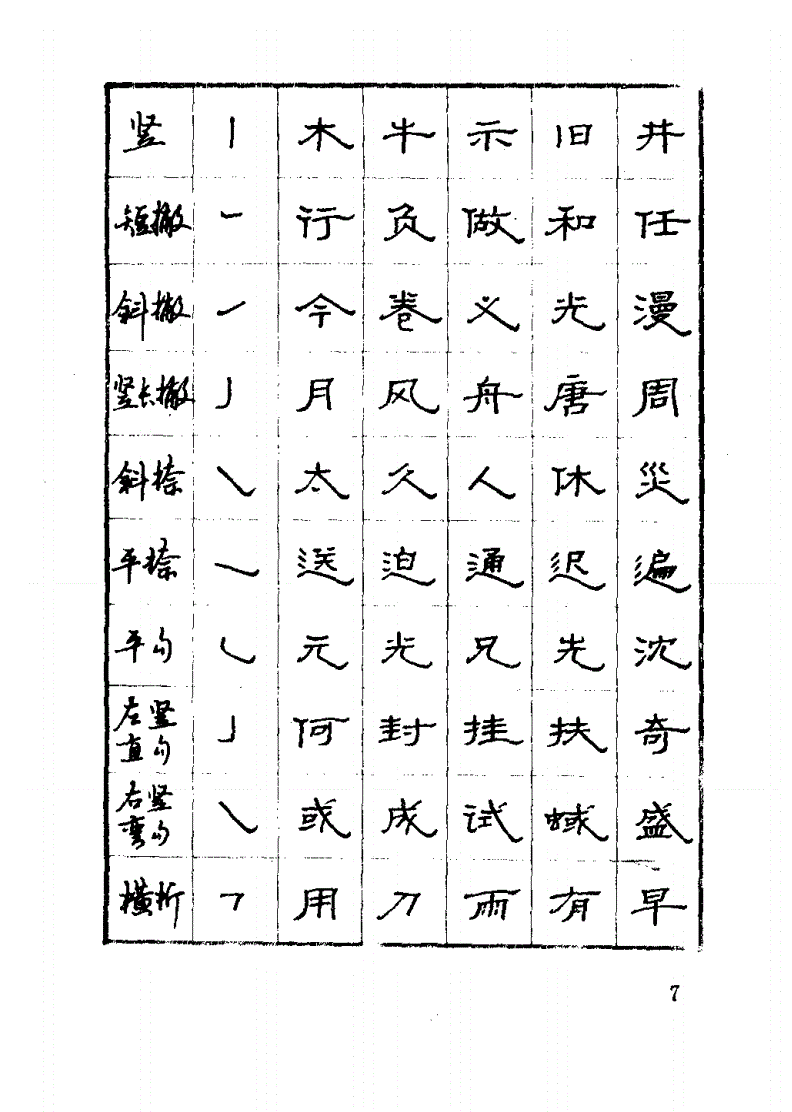 竖 丨 木 牛 示 旧 井
短撇 ㇒ 行 负 做 和 任
斜撇 ㇒ 今 卷 义 光 漫
竖长撇 丿 月 风 舟 唐 周
斜捺 ㇏ 太 久 人 休 災
平捺 ㇏ 送 迫 通 迟 遍
平勾 ㇃ 元 光 兄 先 沈
左竖
直勾 亅 何 封 挂 扶 奇
右竖
弯勾 ㇂ 或 成 试 蜮 盛
横折 𠃍 用 刀 雨 有 早
7